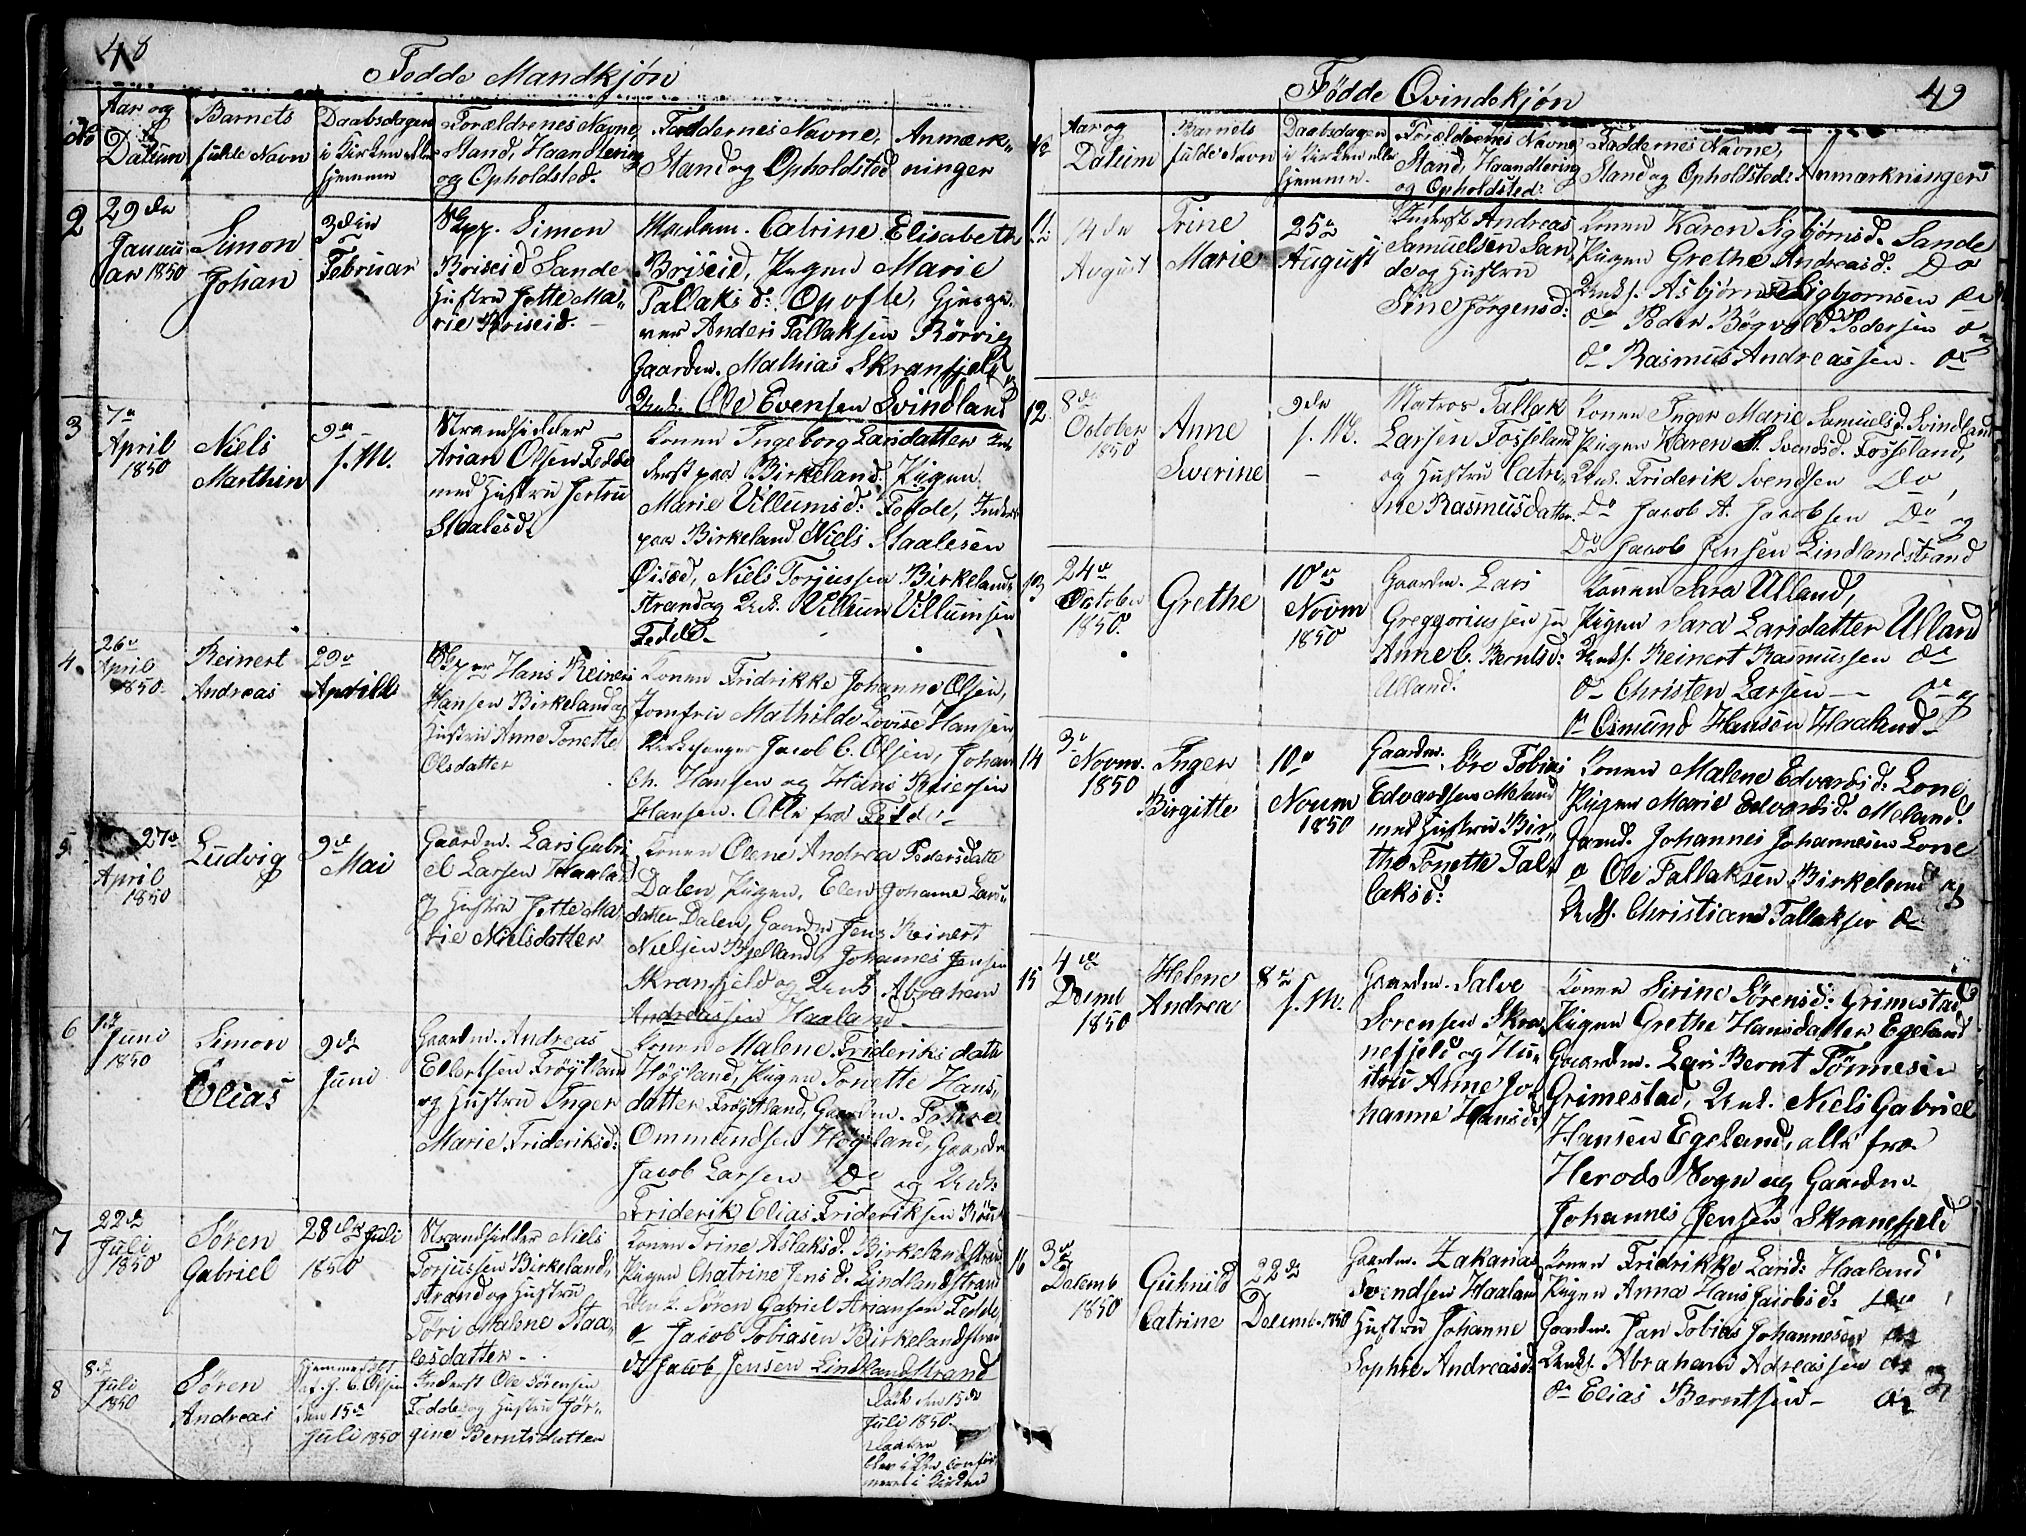 48
Fødde Mandkjøn
No
Aar og
Datum
Barnets
fulde Navn
Daabsdagen
i Kirken eller
hjemme
Forældrenes Navne,
Stand, Haandtering
og Opholdsted.
Faddernes Navne,
Stand og Opholdsted
Anmærk-
ninger
2
29de
Janu
ar 1850
Simon
Johan
3die
Februar
Skpp. Simon
Briseid Sande
Hustru Jette Ma-
rie Briseid.
Madam. Catrine Elisabeth
Briseid, Pigen Marie
Tallaksd: Opofte, Gjesgi-
ver Anders Tallaksen Rørvig
Gaardm. Mathias Skranefjeld
Unk. Ole Evensen Svindland
3
7de
April
1850
Niels
Marthin
9de
s. M.
Strandsidder
Arian Olsen Fedde
med Hustru Jertru
Staalesd.
Konen Ingeborg Larsdatter In-
derst paa Birkeland: Pigen
Marie Villumsd: Fedde, Inderst
paa Birkeland Niels Staalesen
Øisæd, Niels Torjussen Birkeland-
strand og Unk. Villum Villumsen
Fedde.
4.
26de
April
1850.
Reinert
Andreas
29de
Aprill
Hans Reinert
Hansen Birkeland og
Hustru Anne Tonette
Olsdatter
Konen Fridrikke Johanne Olsen,
Jomfru Mathilde Lovise Hansen
Kirkesanger Jacob C. Olsen, Johan
Ch. Hansen og Hans Reiersen
Hansen. Alle fra Fedde
5.
27de
April
1850
Ludvig
9de
Mai
Gaardm. Lars Gabri
el Larsen Haaland
og Hustru Jette Ma-
rie Nielsdatter
Konen Olene Andrea Pedersdatte
Dalen, Pigen, Elen Johanne Lars-
datter Dalen, Gaardm Jens Reinert
Nielsen Bjelland, Johannes Jensen
Skranefjeld og Unk. Abraham
Andreassen Haaland
6
1ste
Juni
1850
Simon
Elias
9de
Juni
Gaardm. Andreas
Elbertsen Frøytland
og Hustru Inger
Marie Frideriksd:
Konen Malene Frideriks datte
Høyland, Pigen Tonette Hans-
datter Frøytland, Gaardm. Tønnes
Ommundsen Høyland, Gaardm
Jacob Larsen Do og Unk:
Friderik Elias Frideriksen
7
22de
Juli
1850
Søren
Gabriel
28de Juli
1850
Strandsidder Niels
Torjussen Birkeland-
strand og Hustru
Tøri Malene Staa-
lesdatter
Konen Trine Aslaksd. Birkelandstrand
Pigen Chatrine Jensd. Lindlandstrand
Unk. Søren Gabriel Ariansen Fedde,
do Jacob Tobiasen Birkelandstrand
do Jacob Jensen Lindlandstrand
8
8de
Juli
1850
Søren
Andreas
Hjemmedøbt
af J. C. Olsen
den 15de
Juli 1850
Inderst Ole Sørensen
Fedde og Hustru Jør-
gine Berntsdatter
Døde den 15de
Juli 1850.
Daaben
blev i
i Kirken
49
Fødde Qvindekjøn
No
Aar og
Datum
Barnets
fulde Navn
Daabsdagen
i Kirken eller
hjemme.
Forældrenes Navne,
Stand, Haandtering
og Opholdsted:
Faddernes Navne,
Stand og Opholdsted:
Anmærkninger
11
14de
August
Trine
Marie
25de
August
Inderst Andreas
Samuelsen San-
de og Hustru
Sine Jørgensd:
Konen Karen Sigbjørnsd. Sande
Pigen Grethe Andreasd: Do
Unk. Asbjørn Sigbjørnsen do
do Peder Bøgvald Pedersen do og
do Rasmus Andreassen. do
12
8de
October
1850
Anne
Sverine
9de
s. M.
Matros Tallak
Larsen Fosseland
og Hustru Catri-
ne Rasmusdatter.
Konen Inger Marie Samuelsd. Svindland
Pigen Karen St. Svendsd. Fosseland,
Unk. Friderik Svendsen Do,
Do Jacob A. Jacobsen Do og
Do Jacob Jensen Lindlandstrand
13
24de
October
1850.
Grethe
10de
Novm
1850
Gaardm. Lars
Greggoriussen
Anne C. Berntsd:
Ulland.
Konen Sara Ulland,
Pigen Sara Larsdatter Ulland
Unk. Reinert Rasmussen do
do Christen Larsen — do og
do Osmund Hansen Haaland
14
3de
Novm.
1850
Inger
Birgitte
10de
Novm
1850
Gaardm. Ore Tobias
Edvardsen Meland
med Hustru Bir-
the Tonette Tal-
laksd:
Konen Malene Edvardsd: Lone,
Pigen Marie Edvardsd. Meland.
Gaardm. Johannes Johannesen Lone
do Ole Tallaksen Birkeland og
Unk. Christian Tallaksen do
15
4de
Decmb
1850
Helene
Andrea
8de
s. M.
Gaardm. Salve
Sørensen Skra-
nefjeld og Hu-
stru Anne Jo-
hanne Hansd:
Konen Sirine Sørensd: Grimestad
Pigen Grethe Hansdatter Egeland
Gaardm. Lars Bernt Tønnesen
Grimestad, Unk. Niels Gabriel
Hansen Egeland, alle fra
Herods Sogn og Gaardm.
Johannes Jensen Skranefjeld
16
3de
Decemb
1850
Guhnild
Catrine
22de
Decemb. 1850
Gaardm. Zakarias
Svendsen Haaland
Hustru Johanne
Sophie Andreasd:
Konen Fridrikke Larsd: Haaland
Pigen Anna Hans Jacobsd: Do
Gaardm. Jan Tobias Johannesen do
Unk. Abraham Adreassen do og
do Elias Berntsen do